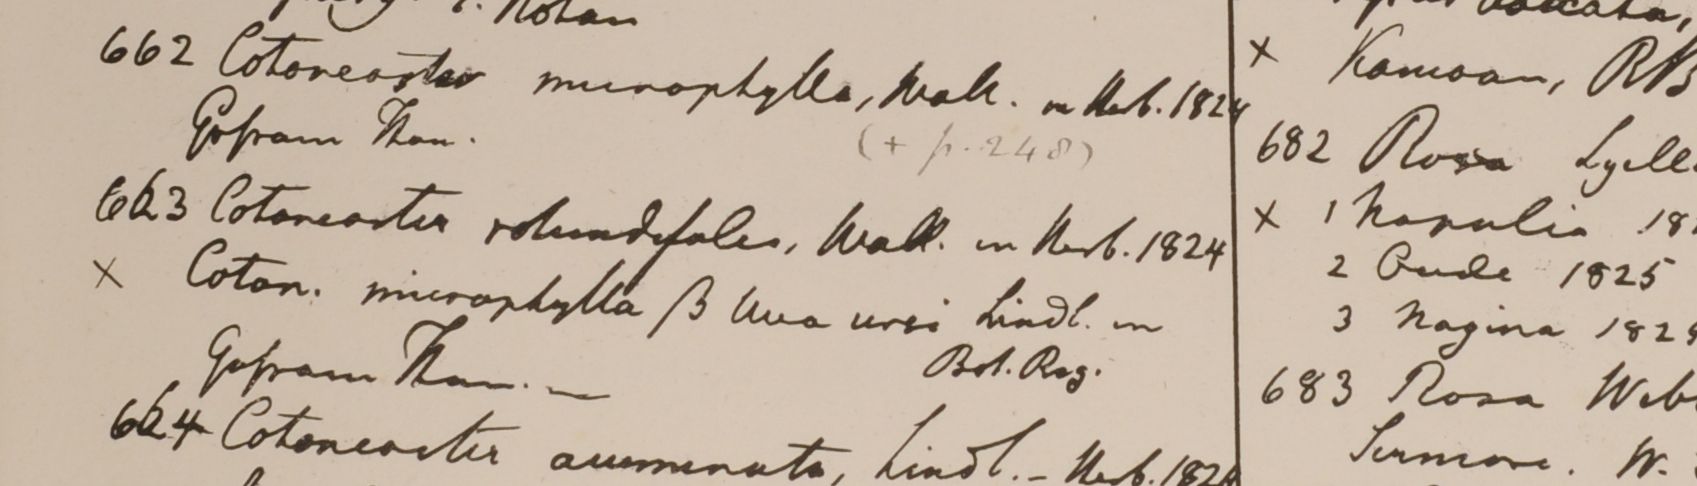 662 Cotoneaster microphylla, Wall. in Herb. 1824
Gofsam Than.
(+ p. 248)
663 Cotoneaster rotundifolia, Wall. in Herb. 1824
× Coton. microphylla β Uva ursi Lindl. in
Bot. Reg.
Gofsam Than. —
664 Cotoneaster acuminata, Lindl. – Herb. 1824
× Kamoan, RB
682 Rosa Lyell
× 1 Napalia 18
2 Oude 1825
3 Nagina 1825
683 Rosa Web
Sirmore. W.